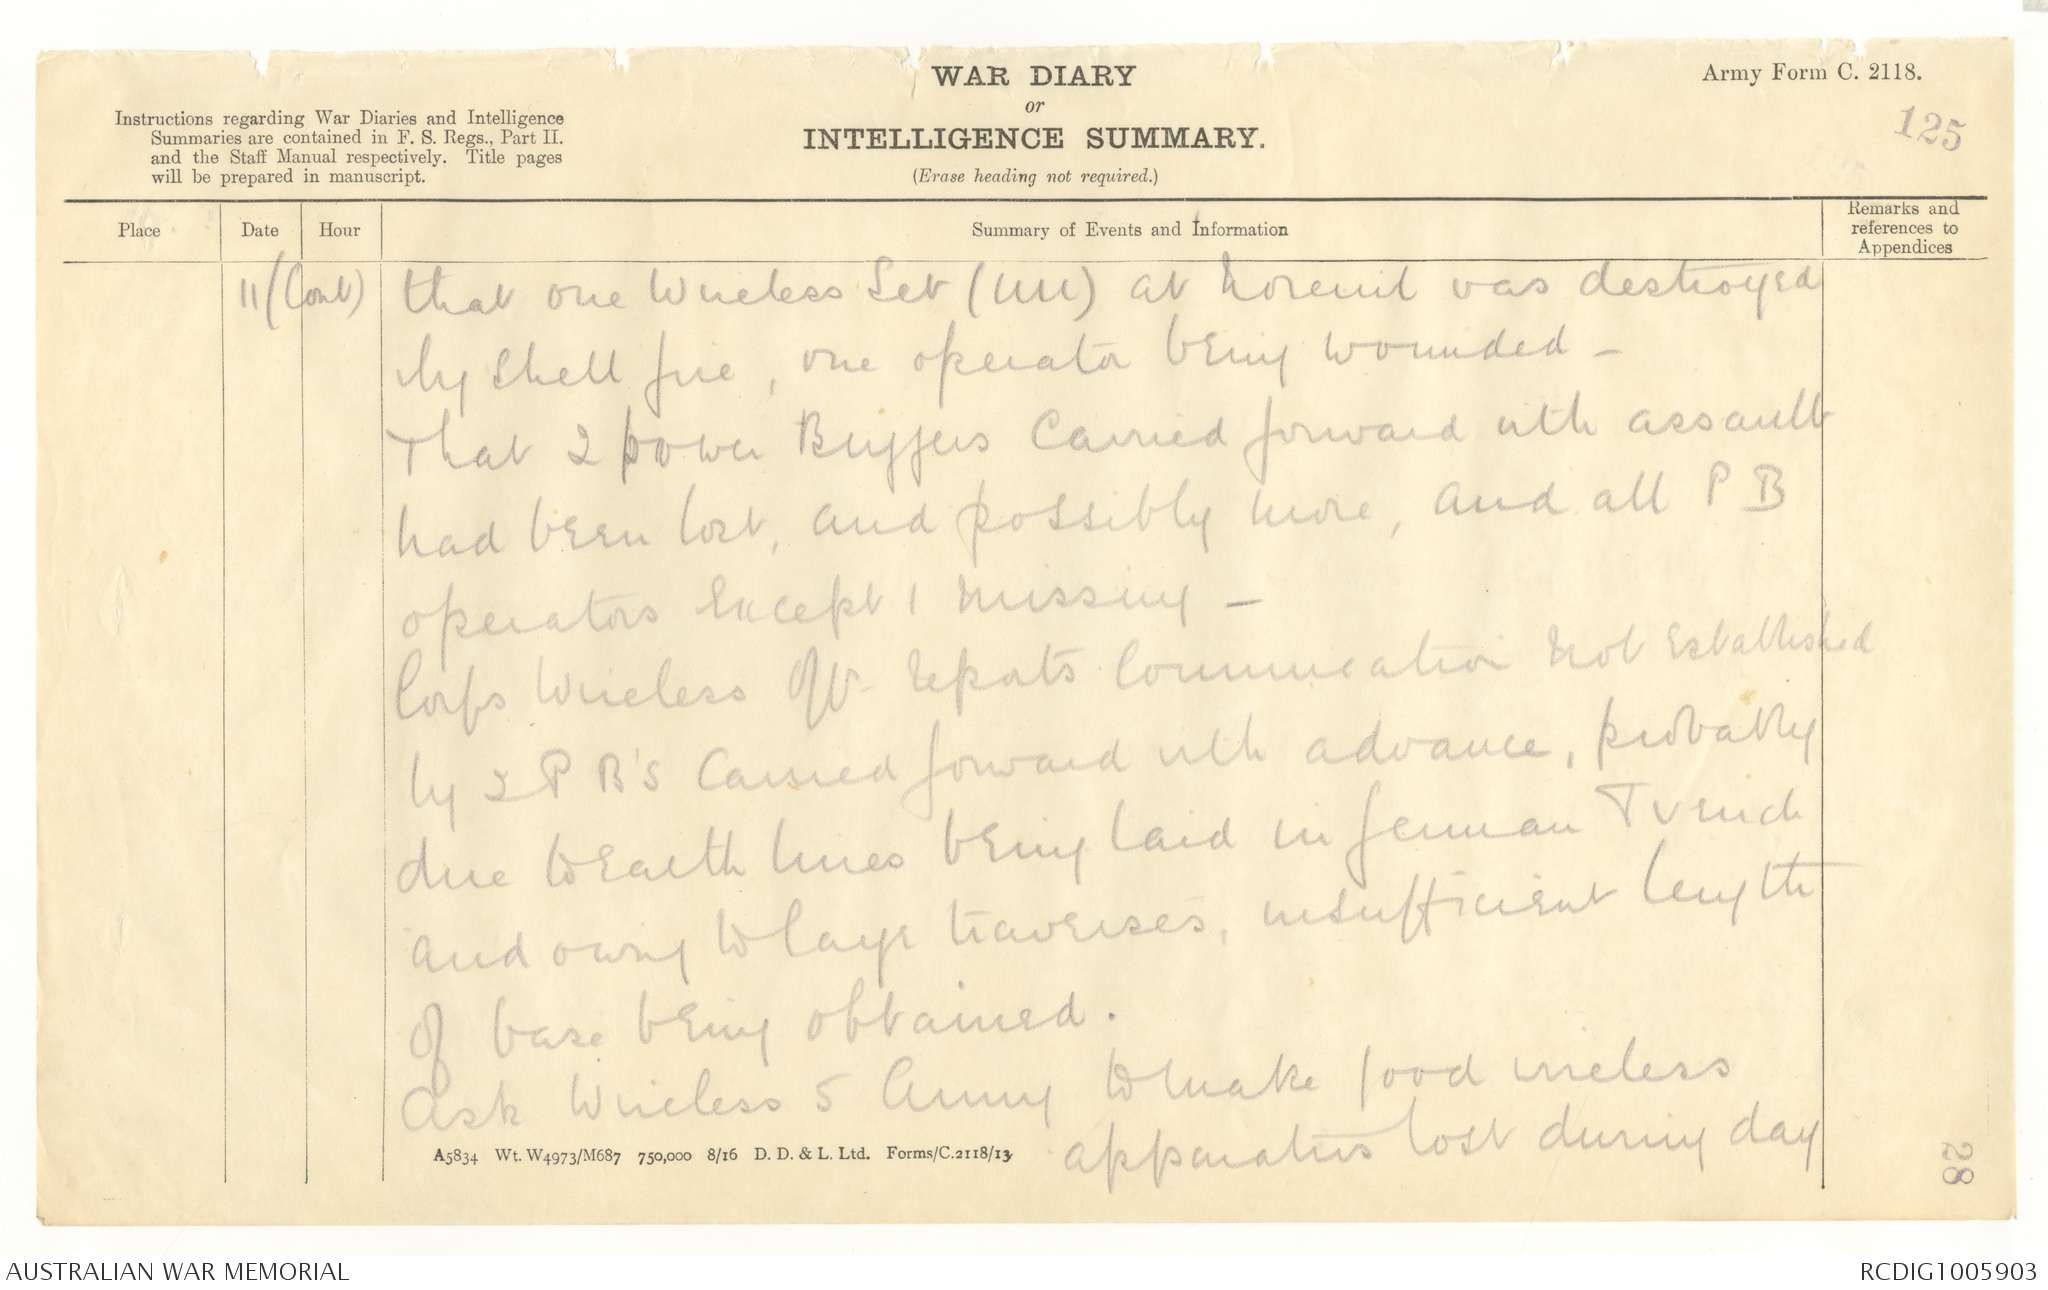 WAR DIARY
or
INTELLIGENCE SUMMARY.
(Erase heading not required.)
Army Form C. 2118.
125
Instructions regarding War Diaries and Intelligence
Summaries are contained in F. S. Regs., Part II.
and the Staff Manual respectively. Title pages
will be prepared in manuscript.
Place
Date
Hour
Summary of Events and Information
Remarks and
references to
Appendices
11 (Cont) that one Wireless Set ( ) at Noreuil was destroyed
by shell fire, one operator being wounded –
That 2 power Buzzers carried forward with assault
had been lost, and possibly more, and all P B
operators except 1 missing –
Corps Wireless Offr. reports communication not established
by 2 P B's carried forward with advance, probably
due to earth lines being laid in German Trench
and owing to large traverses, insufficient length
of base being obtained.
Ask Wireless 5 Army to make good wireless
apparatus lost during day
A5834 Wt. W4973/M687 750,000 8/16 D. D. & L. Ltd. Forms/C.2118/13
28
AUSTRALIAN WAR MEMORIAL
RCDIG1005903